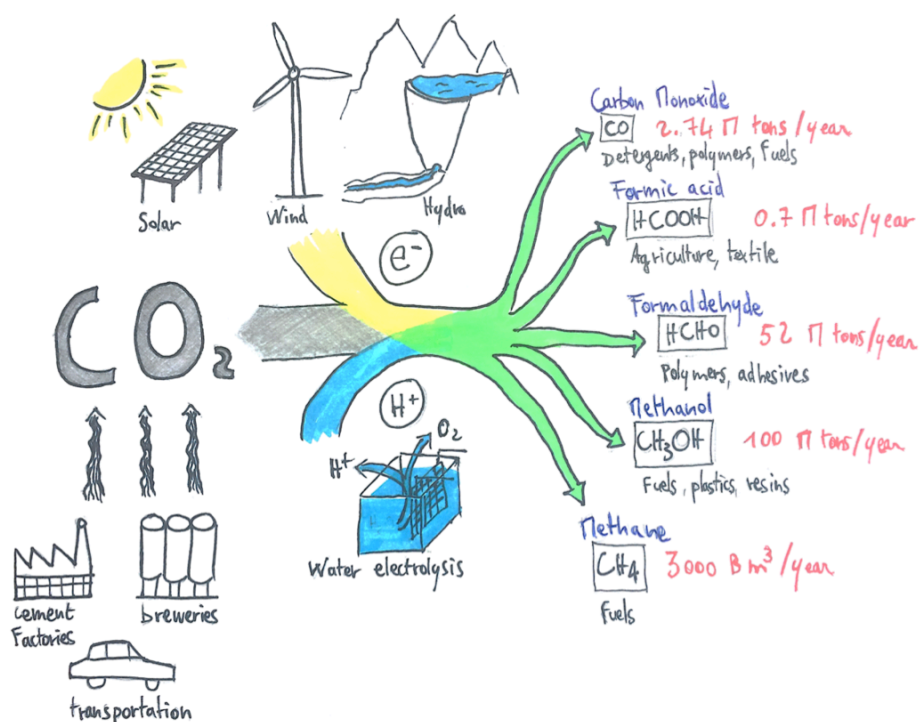 Solar
Wind
Hydro
e⁻
CO₂
H⁺
H⁺
O₂
Water electrolysis
cement
Factories
breweries
transportation
Carbon Monoxide
CO 2.74 M tons/year
Detergents, polymers, fuels
Formic acid
HCOOH 0.7 M tons/year
Agriculture, textile
Formaldehyde
HCHO 52 M tons/year
Polymers, adhesives
Methanol
CH₃OH 100 M tons/year
Fuels, plastics, resins
Methane
CH₄ 3000 B m³/year
Fuels